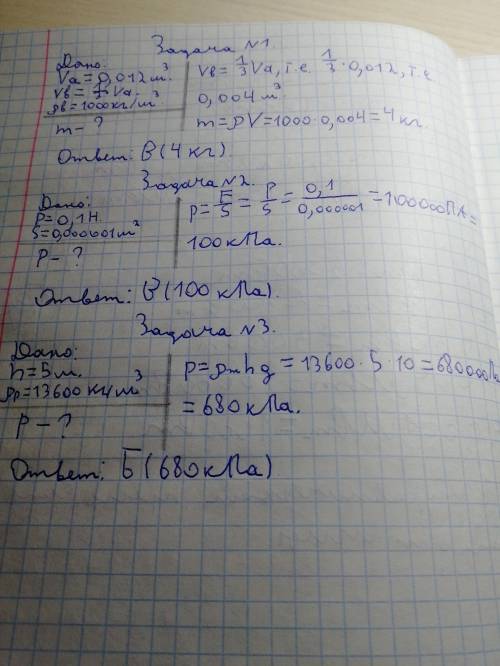 Задача №1
Дано:
Vа = 0,012 м³
Vв = 1/3 Vа.
ρв = 1000 кг/м³
m - ?
Vв = 1/3 Vа, т.е. 1/3 · 0,012, т.е
0,004 м³
m = ρV = 1000 · 0,004 = 4 кг.
Ответ: В (4 кг).
Задача №2.
Дано:
P = 0,1 Н.
S = 0,000001 м²
P - ?
p = F/S = P/S = 0,1/0,000001 = 100000 ПА =
100 кПа.
Ответ: В (100 кПа).
Задача №3.
Дано:
h = 5 м.
ρр = 13600 кг/м³
P - ?
p = ρжhg = 13600 · 5 · 10 = 680000 Па
= 680 кПа.
Ответ: Б (680 кПа)